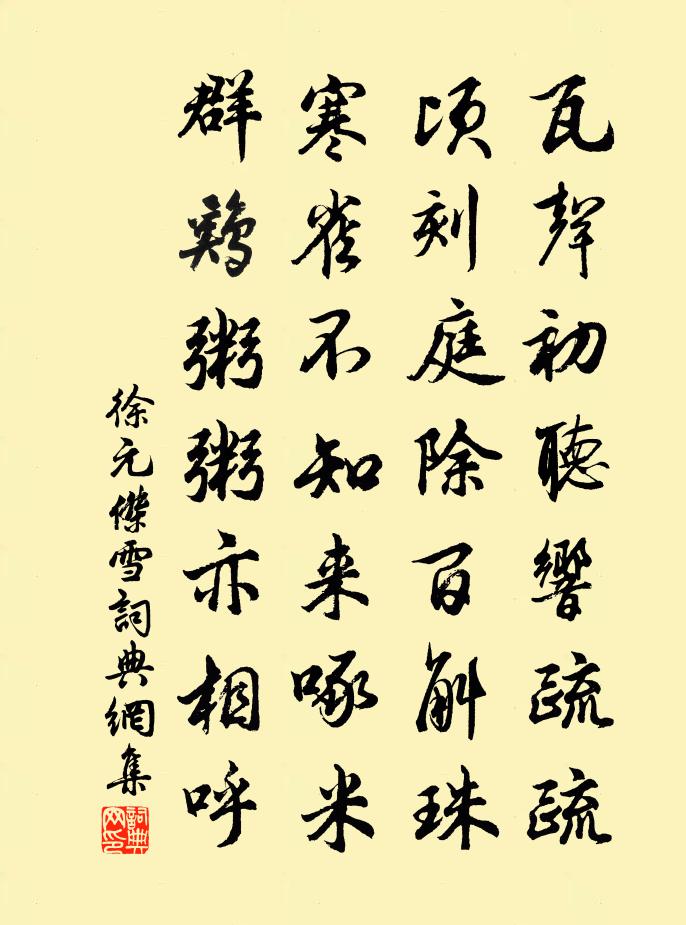 瓦聲初聽響疏疏
頃刻庭除百斛珠
寒雀不知来啄米
群鷄粥粥亦相呼
徐元傑雪詞典網集
詞典網印